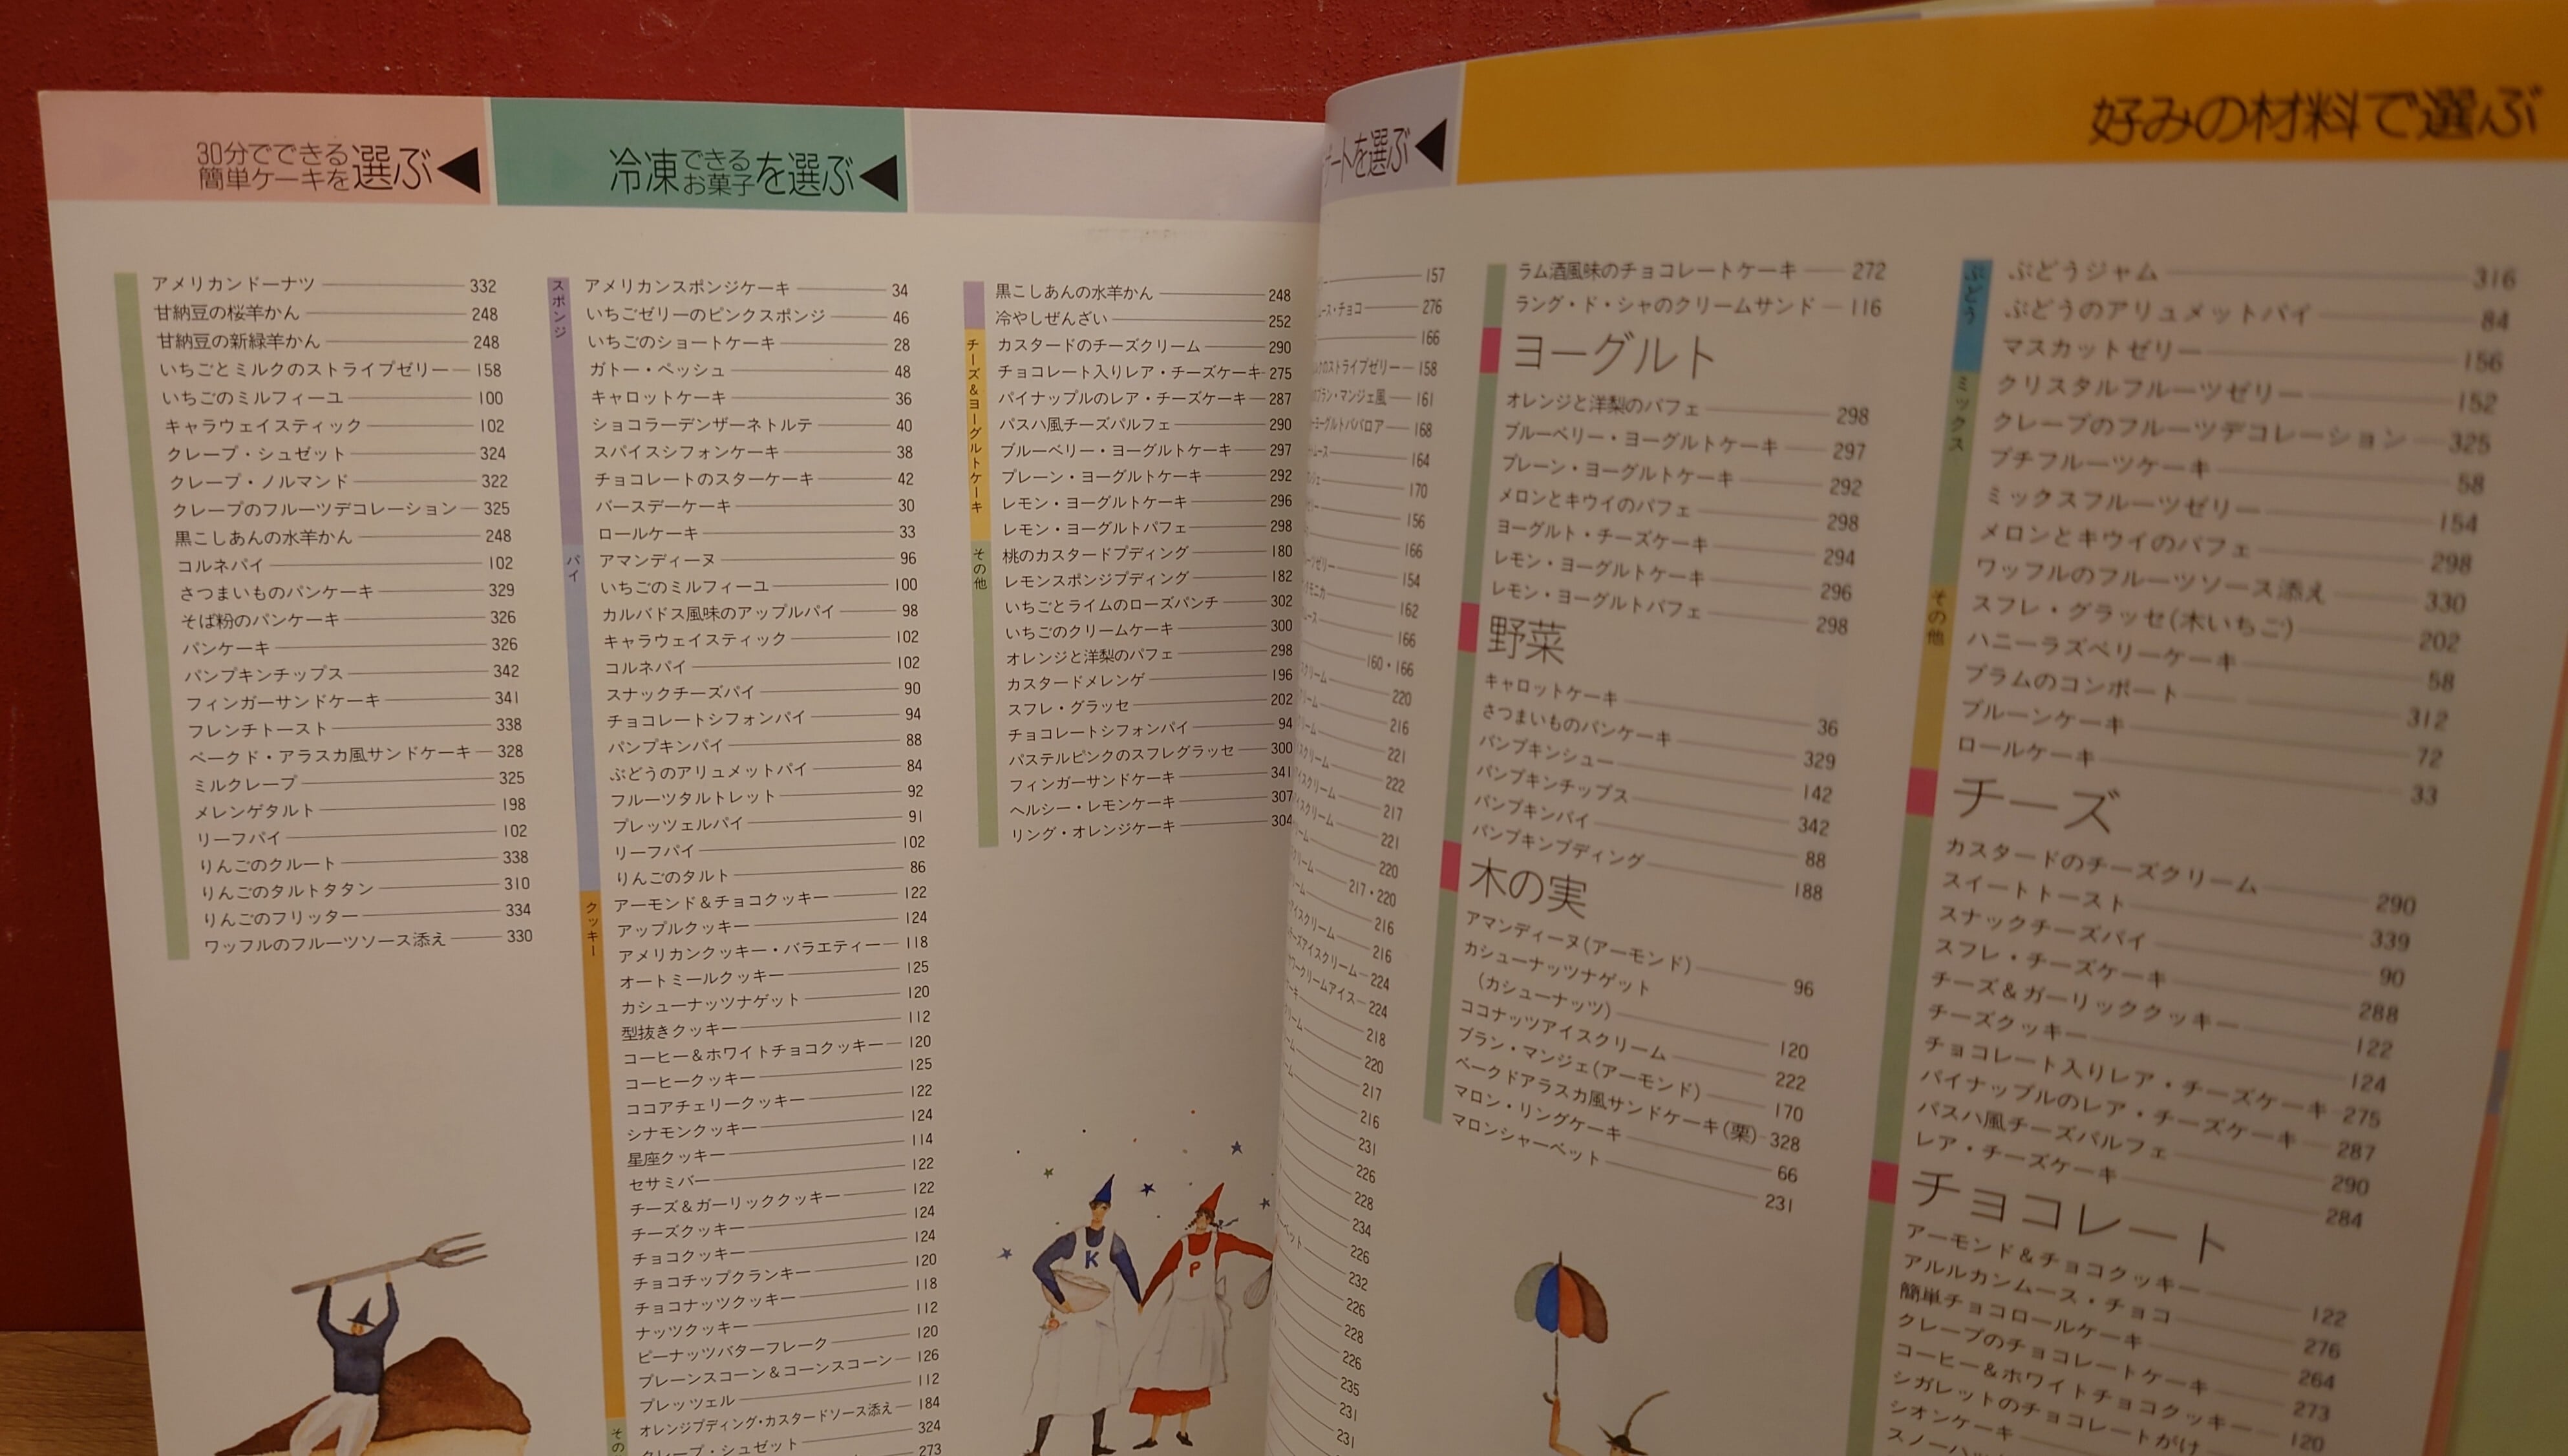 30分でできる
簡単ケーキを選ぶ◀
アメリカンドーナツ 332
甘納豆の桜羊かん 248
甘納豆の新緑羊かん 248
いちごとミルクのストライプゼリー 158
いちごのミルフィーユ 100
キャラウェイスティック 102
クレープ・シュゼット 324
クレープ・ノルマンド 322
クレープのフルーツデコレーション 325
黒こしあんの水羊かん 248
コルネパイ 102
さつまいものパンケーキ 329
そば粉のパンケーキ 326
パンケーキ 326
パンプキンチップス 342
フィンガーサンドケーキ 341
フレンチトースト 338
ベークド・アラスカ風サンドケーキ 328
ミルクレープ 325
メレンゲタルト 198
リーフパイ 102
りんごのクルート 338
りんごのタルトタタン 310
りんごのフリッター 334
ワッフルのフルーツソース添え 330
冷凍できるお菓子を選ぶ◀
スポンジ
アメリカンスポンジケーキ 34
いちごゼリーのピンクスポンジ 46
いちごのショートケーキ 28
ガトー・ペッシュ 48
キャロットケーキ 36
ショコラーデンザーネトルテ 40
スパイスシフォンケーキ 38
チョコレートのスターケーキ 42
バースデーケーキ 30
ロールケーキ 33
パイ
アマンディーヌ 96
いちごのミルフィーユ 100
カルバドス風味のアップルパイ 98
キャラウェイスティック 102
コルネパイ 102
スナックチーズパイ 90
チョコレートシフォンパイ 94
パンプキンパイ 88
ぶどうのアリュメットパイ 84
フルーツタルトレット 92
プレッツェルパイ 91
リーフパイ 102
りんごのタルト 86
クッキー
アーモンド＆チョコクッキー 122
アップルクッキー 124
アメリカンクッキー・バラエティー 118
オートミールクッキー 125
カシューナッツナゲット 120
型抜きクッキー 112
コーヒー＆ホワイトチョコクッキー 120
コーヒークッキー 125
ココアチェリークッキー 122
シナモンクッキー 124
星座クッキー 114
セサミバー 122
チーズ＆ガーリッククッキー 122
チーズクッキー 124
チョコクッキー 124
チョコチップクランキー 120
チョコナッツクッキー 118
ナッツクッキー 112
ピーナッツバターフレーク 120
プレーンスコーン＆コーンスコーン 126
プレッツェル 112
その
オレンジプディング・カスタードソース添え 184
クレープ・シュゼット 324
273
黒こしあんの水羊かん 248
冷やしぜんざい 252
チーズ＆ヨーグルトケーキ
カスタードのチーズクリーム 290
チョコレート入りレア・チーズケーキ 275
パイナップルのレア・チーズケーキ 287
パスハ風チーズパルフェ 290
ブルーベリー・ヨーグルトケーキ 297
プレーン・ヨーグルトケーキ 292
レモン・ヨーグルトケーキ 296
レモン・ヨーグルトパフェ 298
その他
桃のカスタードプディング 180
レモンスポンジプディング 182
いちごとライムのローズパンチ 302
いちごのクリームケーキ 300
オレンジと洋梨のパフェ 298
カスタードメレンゲ 196
スフレ・グラッセ 202
チョコレートシフォンパイ 94
パステルピンクのスフレグラッセ 300
フィンガーサンドケーキ 341
ヘルシー・レモンケーキ 307
リング・オレンジケーキ 304
K
P
ートを選ぶ◀
157
ース・チョコ 276
166
のストライプゼリー 158
ブラン・マンジェ風 161
ヨーグルトババロア 168
164
170
156
166
154
162
166
160・166
クリーム 220
216
221
スクリーム 222
イスクリーム 217
イスクリーム 221
220
クリーム 217・220
216
アイスクリーム 216
チーズアイスクリーム 224
サワークリームアイス 224
218
220
217
216
231
226
228
234
226
232
226
228
226
235
231
231
好みの材料で選ぶ
ラム酒風味のチョコレートケーキ 272
ラング・ド・シャのクリームサンド 116
ヨーグルト
オレンジと洋梨のパフェ 298
ブルーベリー・ヨーグルトケーキ 297
プレーン・ヨーグルトケーキ 292
メロンとキウイのパフェ 298
ヨーグルト・チーズケーキ 294
レモン・ヨーグルトケーキ 296
レモン・ヨーグルトパフェ 298
野菜
キャロットケーキ 36
さつまいものパンケーキ 329
パンプキンシュー 142
パンプキンチップス 342
パンプキンパイ 88
パンプキンプディング 188
木の実
アマンディーヌ(アーモンド) 96
カシューナッツナゲット
(カシューナッツ) 120
ココナッツアイスクリーム 222
ブラン・マンジェ(アーモンド) 170
ベークドアラスカ風サンドケーキ(栗) 328
マロン・リングケーキ 66
マロンシャーベット 231
ぶどう
ぶどうジャム 316
ぶどうのアリュメットパイ 84
マスカットゼリー 156
ミックス
クリスタルフルーツゼリー 152
クレープのフルーツデコレーション 325
プチフルーツケーキ 58
ミックスフルーツゼリー 154
メロンとキウイのパフェ 298
ワッフルのフルーツソース添え 330
その他
スフレ・グラッセ(木いちご) 202
ハニーラズベリーケーキ 58
プラムのコンポート 312
プルーンケーキ 72
ロールケーキ 33
チーズ
カスタードのチーズクリーム 290
スイートトースト 339
スナックチーズパイ 90
スフレ・チーズケーキ 288
チーズ＆ガーリッククッキー 122
チーズクッキー 124
チョコレート入りレア・チーズケーキ 275
パイナップルのレア・チーズケーキ 287
パスハ風チーズパルフェ 290
レア・チーズケーキ 284
チョコレート
アーモンド＆チョコクッキー 122
アルルカンムース・チョコ 276
簡単チョコロールケーキ 264
クレープのチョコレートケーキ 273
コーヒー＆ホワイトチョコクッキー 120
シガレットのチョコレートがけ
シオンケーキ
スノーハッ